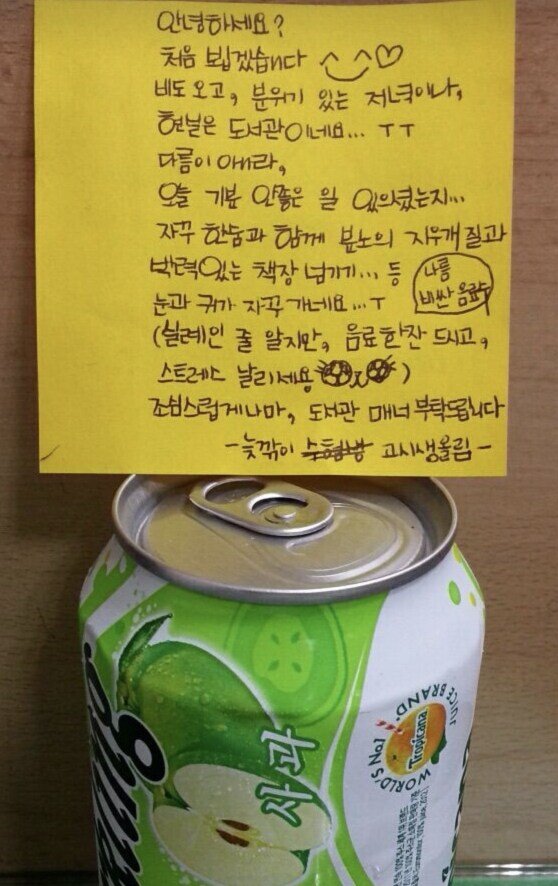 안녕하세요?
처음 뵙겠습니다 ^‿^♡
비도 오고, 분위기 있는 저녁이나,
현실은 도서관이네요... ㅜㅜ
다름이 아니라,
오늘 기분 안좋은 일 있으셨는지...
자꾸 한숨과 함께 분노의 지우개질과
박력있는 책장 넘기기... 등
눈과 귀가 자꾸 가네요...ㅜ
나름
비싼 음료
(실례인 줄 알지만, 음료한잔 드시고,
스트레스 날리세용)
조심스럽게나마, 도서관 매너 부탁드립니다
-늦깎이 수험생 고시생올림-
사과
WORLD'S No1 JUICE BRAND.
Tropicana